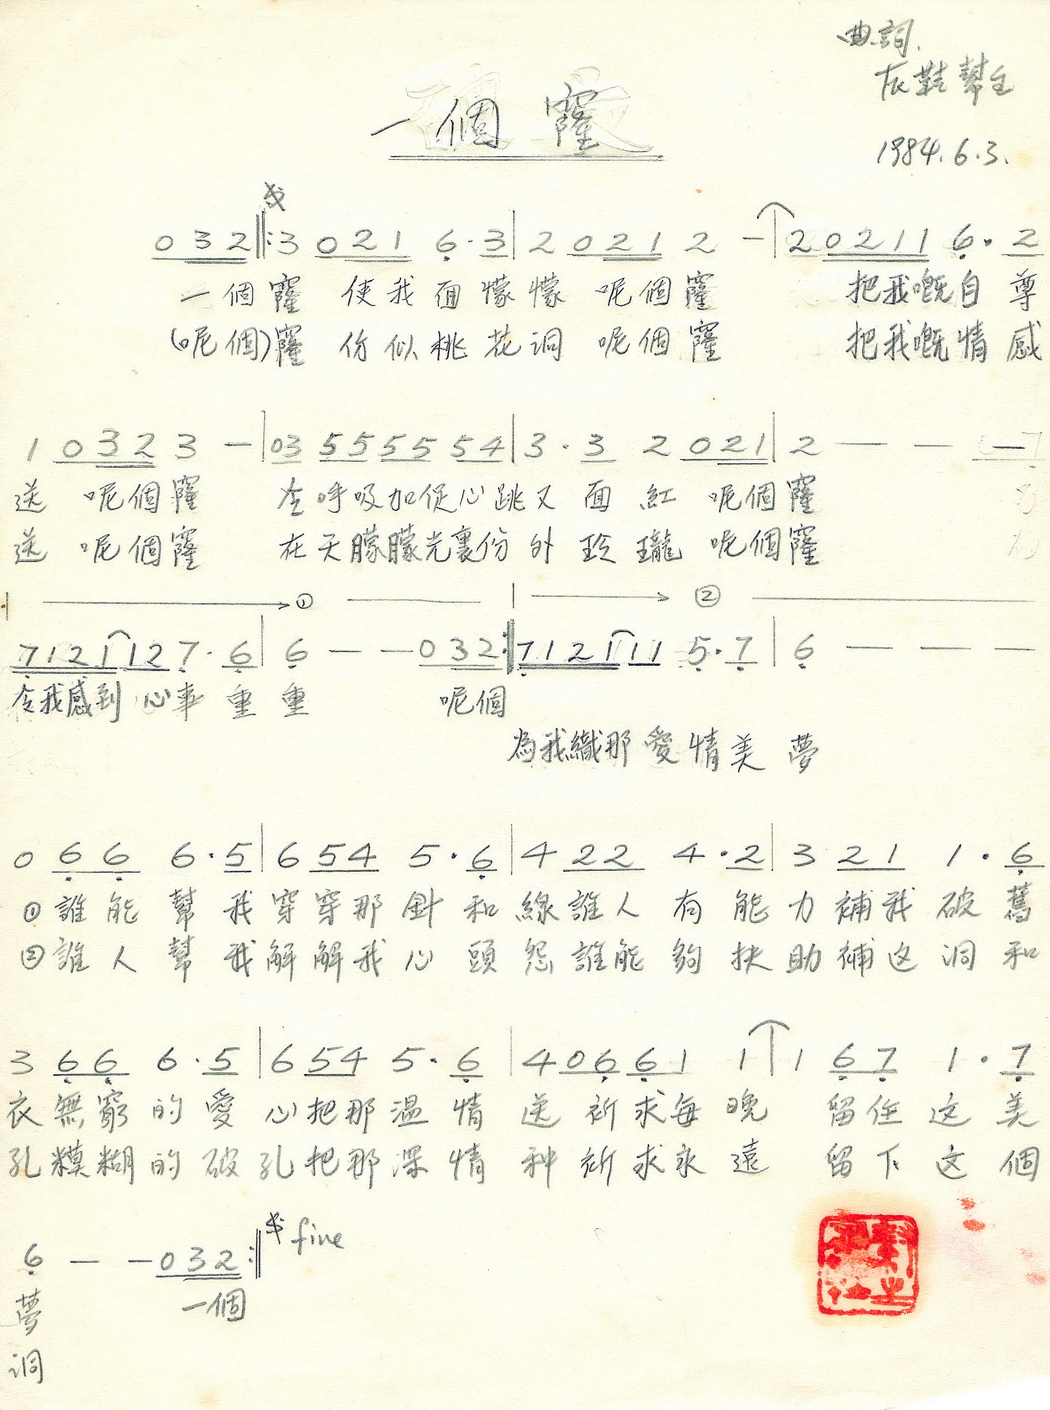 曲詞
灰鞋幫主
一個窿
1984.6.3.
0 3 2 ‖: 3 0 2 1 6 · 3 | 2 0 2 1 2 — | 2 0 2 1 1 6 · 2
一個窿 使我面懞懞 呢個窿 把我嘅自尊
(呢個)窿 仿似桃花洞 呢個窿 把我嘅情感
1 0 3 2 3 — | 0 3 5 5 5 5 5 4 | 3 · 3 2 0 2 1 | 2 — — —
送 呢個窿 令呼吸加促心跳又面紅 呢個窿
送 呢個窿 在天朦朦光裏份外玲瓏 呢個窿
① ②
7 1 2 1 1 2 7 · 6 | 6 — — 0 3 2 :‖ 7 1 2 1 1 1 5 · 7 | 6 — — —
令我感到心事重重 呢個
為我織那愛情美夢
0 6 6 6 · 5 | 6 5 4 5 · 6 | 4 2 2 4 · 2 | 3 2 1 1 · 6
① 誰能幫我穿穿那針和線誰人有能力補我破舊
② 誰人幫我解解我心頭怨誰能夠扶助補这洞和
3 6 6 6 · 5 | 6 5 4 5 · 6 | 4 0 6 6 1 1 | 1 6 7 1 · 7
衣無窮的愛心把那溫情送祈求每晚留住这美
孔糢糊的破孔把那深情种祈求永遠留下这個
6 — — 0 3 2 :‖ fine
夢 一個
洞